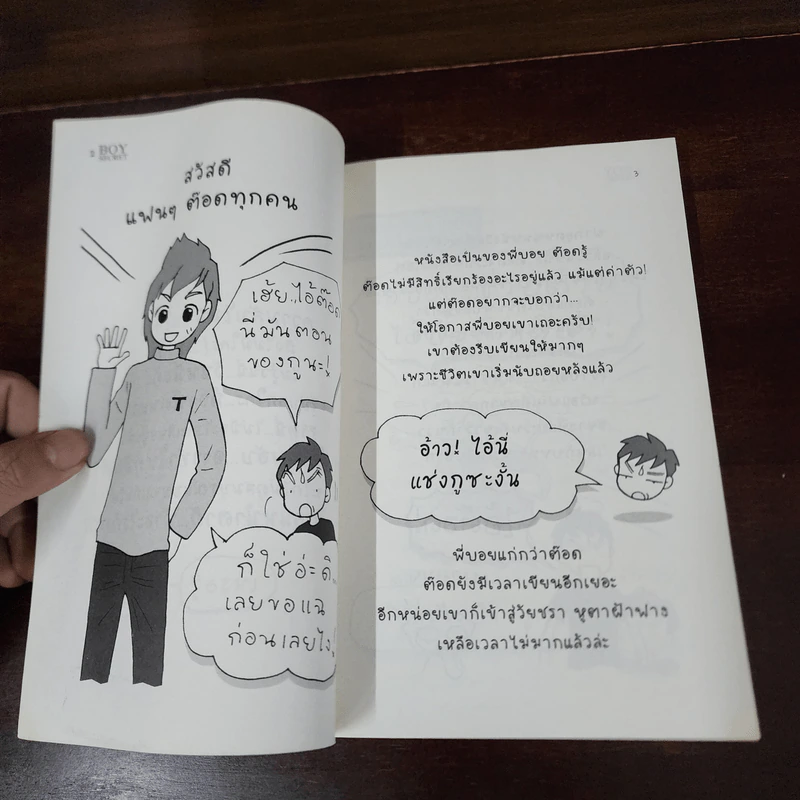 2 BOY
SECRET
สวัสดี
แฟนๆ ต๊อดทุกคน
เฮ้ย..ไอ้ต๊อด
นี่มันตอน
ของกูนะ!
T
ก็ใช่อ่ะดิ..
เลยขอแฉ
ก่อนเลยไง!
3
หนังสือเป็นของพี่บอย ต๊อดรู้
ต๊อดไม่มีสิทธิ์เรียกร้องอะไรอยู่แล้ว แม้แต่ค่าตัว!
แต่ต๊อดอยากจะบอกว่า...
ให้โอกาสพี่บอยเขาเถอะครับ!
เขาต้องรีบเขียนให้มากๆ
เพราะชีวิตเขาเริ่มนับถอยหลังแล้ว
อ้าว! ไอ้นี่
แช่งกูซะงั้น
พี่บอยแก่กว่าต๊อด
ต๊อดยังมีเวลาเขียนอีกเยอะ
อีกหน่อยเขาก็เข้าสู่วัยชรา หูตาฝ้าฟาง
เหลือเวลาไม่มากแล้วล่ะ